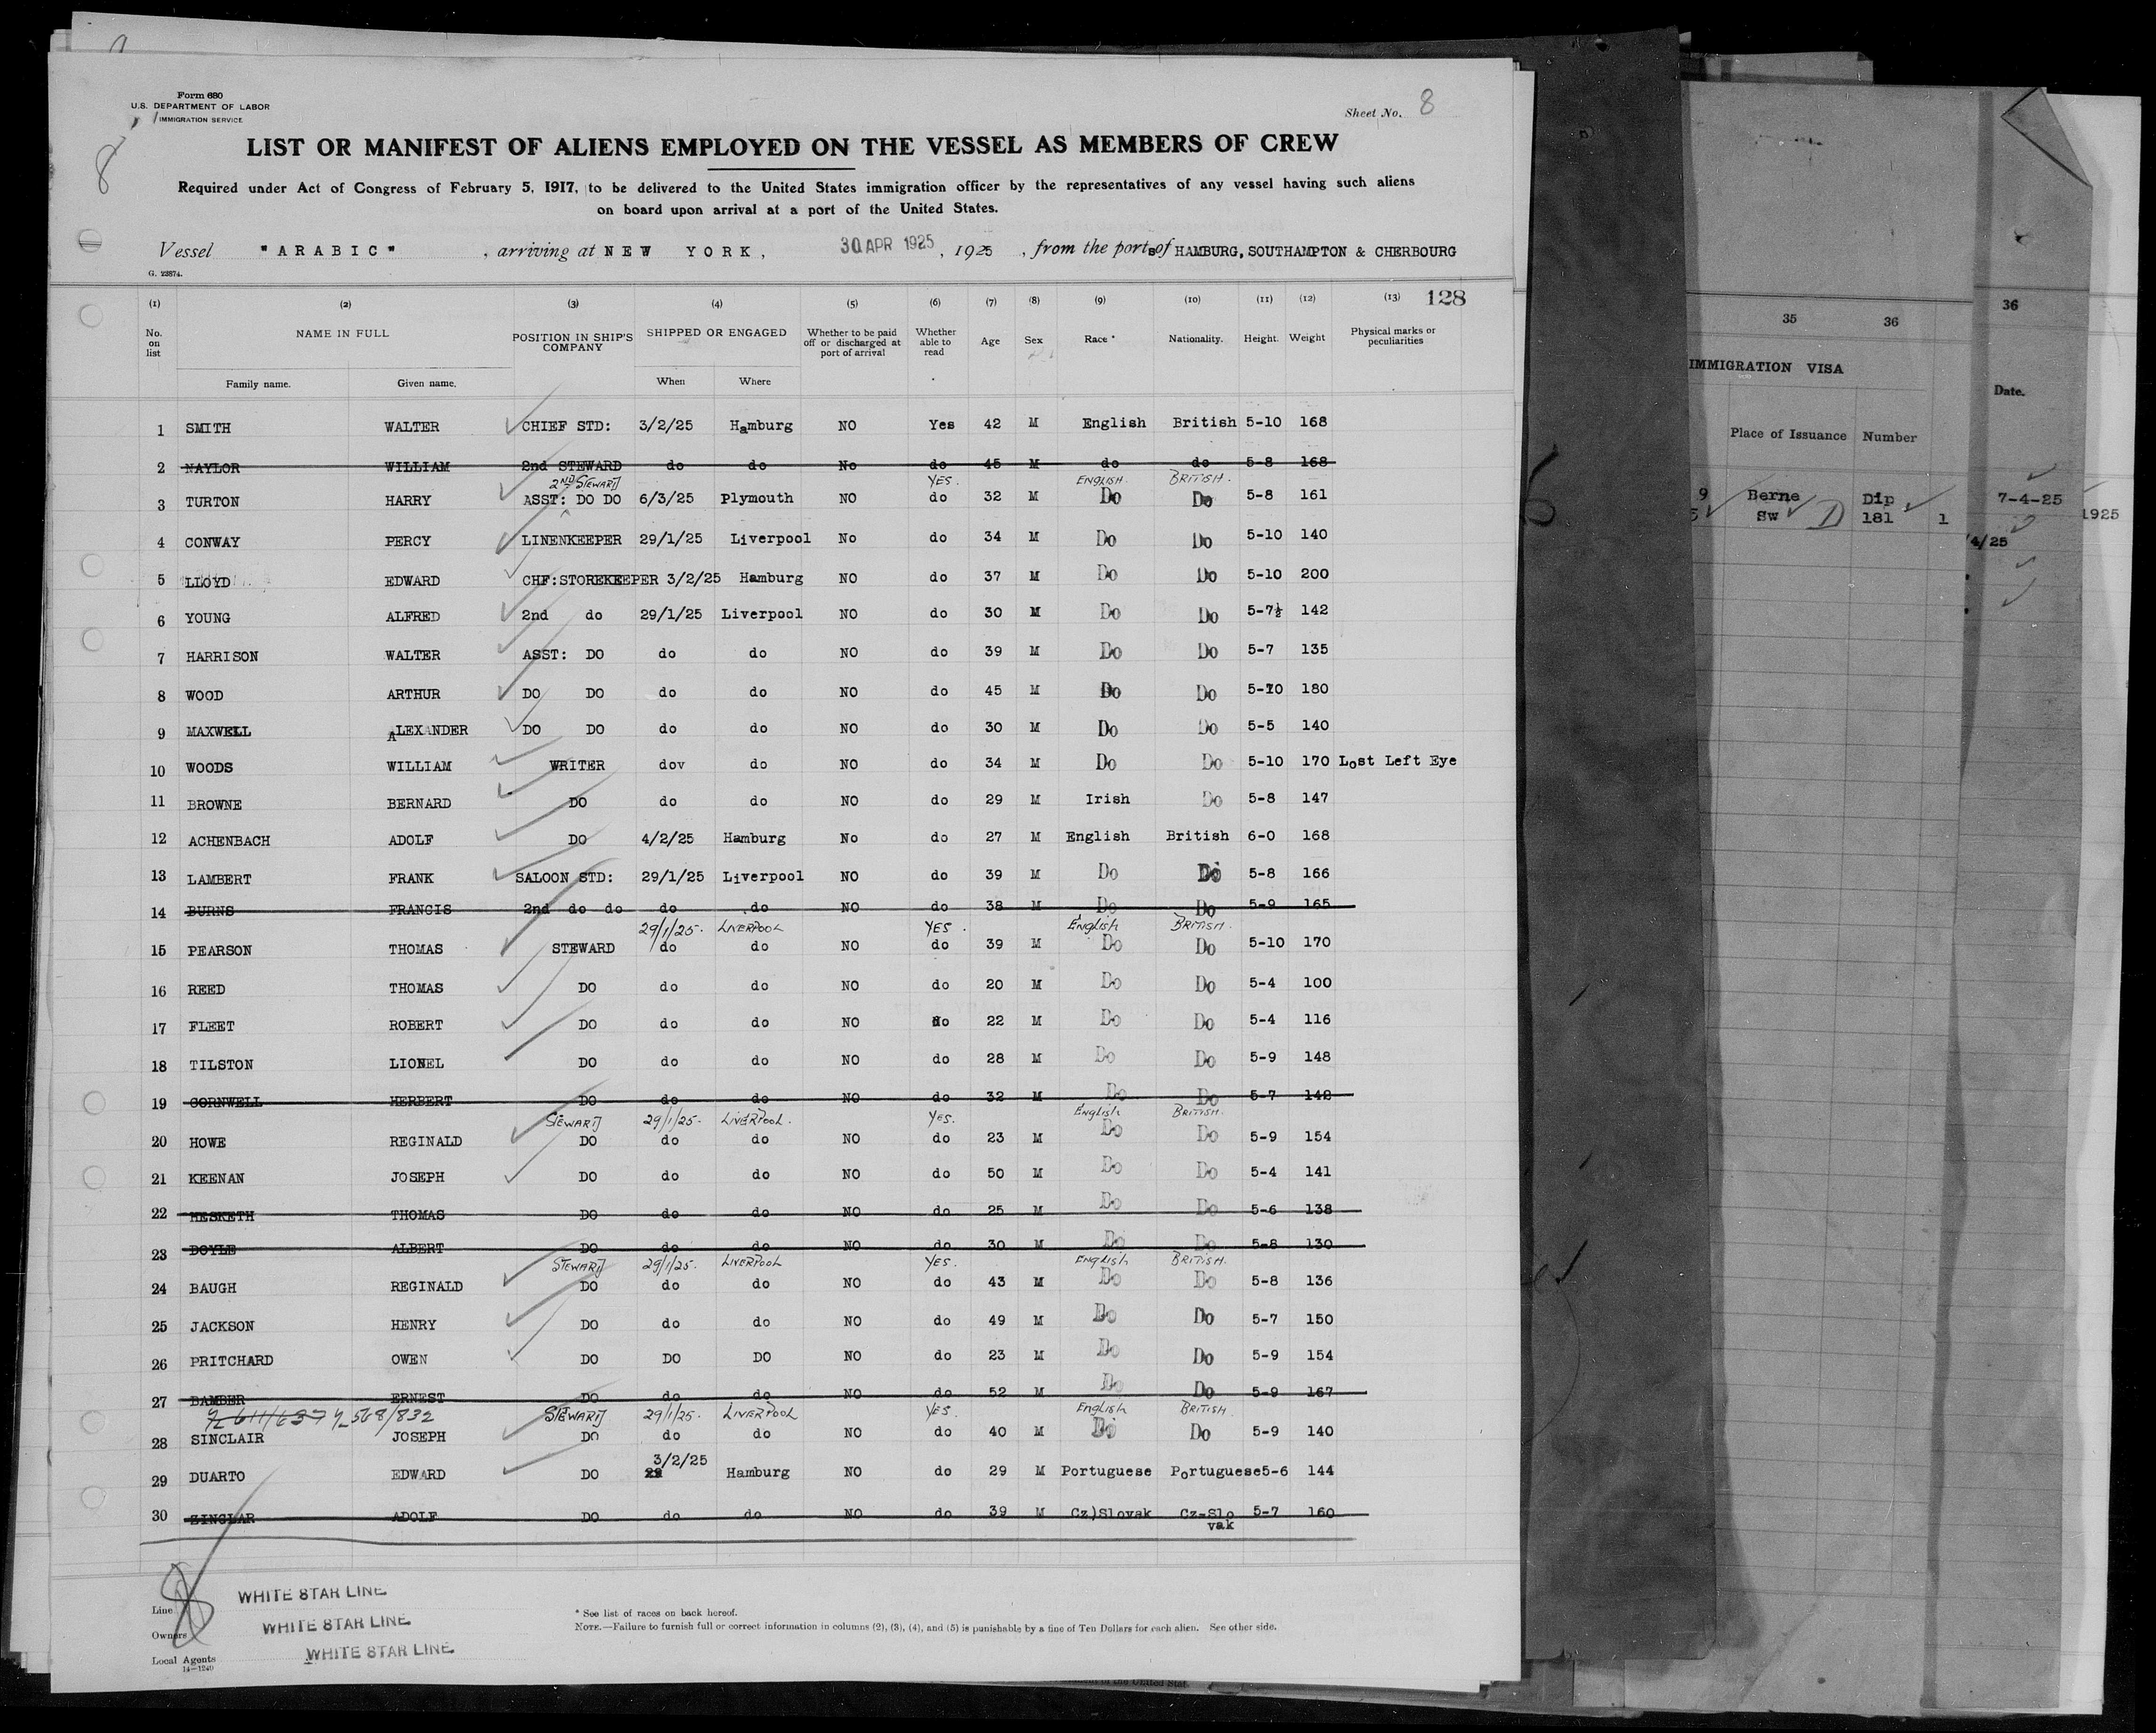 Form 680
U.S. DEPARTMENT OF LABOR
IMMIGRATION SERVICE
Sheet No. 8
8
LIST OR MANIFEST OF ALIENS EMPLOYED ON THE VESSEL AS MEMBERS OF CREW
Required under Act of Congress of February 5, 1917, to be delivered to the United States immigration officer by the representatives of any vessel having such aliens
on board upon arrival at a port of the United States.
Vessel "ARABIC", arriving at NEW YORK, 30 APR 1925, 1925, from the ports of HAMBURG, SOUTHAMPTON & CHERBOURG
G. 23874.
(1) (2) (3) (4) (5) (6) (7) (8) (9) (10) (11) (12) (13) 128
No. on list NAME IN FULL POSITION IN SHIP'S COMPANY SHIPPED OR ENGAGED Whether to be paid off or discharged at port of arrival Whether able to read Age Sex Race * Nationality. Height. Weight Physical marks or peculiarities
Family name. Given name. When Where
1 SMITH WALTER CHIEF STD: 3/2/25 Hamburg NO Yes 42 M English British 5-10 168
2 NAYLOR WILLIAM 2nd STEWARD do do No do 45 M do do 5-8 168
2ND STEWARD YES. ENGLISH. BRITISH.
3 TURTON HARRY ASST: DO DO 6/3/25 Plymouth NO do 32 M Do Do 5-8 161
4 CONWAY PERCY LINENKEEPER 29/1/25 Liverpool No do 34 M Do Do 5-10 140
5 LLOYD EDWARD CHF:STOREKEEPER 3/2/25 Hamburg NO do 37 M Do Do 5-10 200
6 YOUNG ALFRED 2nd do 29/1/25 Liverpool NO do 30 M Do Do 5-7½ 142
7 HARRISON WALTER ASST: DO do do NO do 39 M Do Do 5-7 135
8 WOOD ARTHUR DO DO do do NO do 45 M Do Do 5-10 180
9 MAXWELL ALEXANDER DO DO do do NO do 30 M Do Do 5-5 140
10 WOODS WILLIAM WRITER dov do NO do 34 M Do Do 5-10 170 Lost Left Eye
11 BROWNE BERNARD DO do do NO do 29 M Irish Do 5-8 147
12 ACHENBACH ADOLF DO 4/2/25 Hamburg No do 27 M English British 6-0 168
13 LAMBERT FRANK SALOON STD: 29/1/25 Liverpool NO do 39 M Do Do 5-8 166
14 BURNS FRANCIS 2nd do do do do NO do 38 M Do Do 5-9 165
29/1/25. LIVERPOOL YES. English BRITISH.
15 PEARSON THOMAS STEWARD do do NO do 39 M Do Do 5-10 170
16 REED THOMAS DO do do NO do 20 M Do Do 5-4 100
17 FLEET ROBERT DO do do NO do 22 M Do Do 5-4 116
18 TILSTON LIONEL DO do do NO do 28 M Do Do 5-9 148
19 CORNWELL HERBERT DO do do NO do 32 M Do Do 5-7 142
STEWARD 29/1/25. LIVERPOOL. YES. English BRITISH.
20 HOWE REGINALD DO do do NO do 23 M Do Do 5-9 154
21 KEENAN JOSEPH DO do do NO do 50 M Do Do 5-4 141
22 HESKETH THOMAS DO do do NO do 25 M Do Do 5-6 138
23 DOYLE ALBERT DO do do NO do 30 M Do Do 5-8 130
STEWARD 29/1/25. LIVERPOOL YES. English BRITISH.
24 BAUGH REGINALD DO do do NO do 43 M Do Do 5-8 136
25 JACKSON HENRY DO do do NO do 49 M Do Do 5-7 150
26 PRITCHARD OWEN DO DO DO NO do 23 M Do Do 5-9 154
27 BAMBER ERNEST DO do do NO do 52 M Do Do 5-9 167
568/832 STEWARD 29/1/25. LIVERPOOL YES. English BRITISH.
28 SINCLAIR JOSEPH DO do do NO do 40 M Do Do 5-9 140
29 DUARTO EDWARD DO 3/2/25 Hamburg NO do 29 M Portuguese Portuguese 5-6 144
30 ZINGLAR ADOLF DO do do NO do 39 M Cz)Slovak Cz-Slo 5-7 160
vak
Line WHITE STAR LINE
Owners WHITE STAR LINE
Local Agents WHITE STAR LINE
14—1240
* See list of races on back hereof.
NOTE.—Failure to furnish full or correct information in columns (2), (3), (4), and (5) is punishable by a fine of Ten Dollars for each alien. See other side.
35 36 36
IMMIGRATION VISA
Date.
Place of Issuance Number
9 Berne Dip 7-4-25
5 Sw D 181 1 1925
/4/25